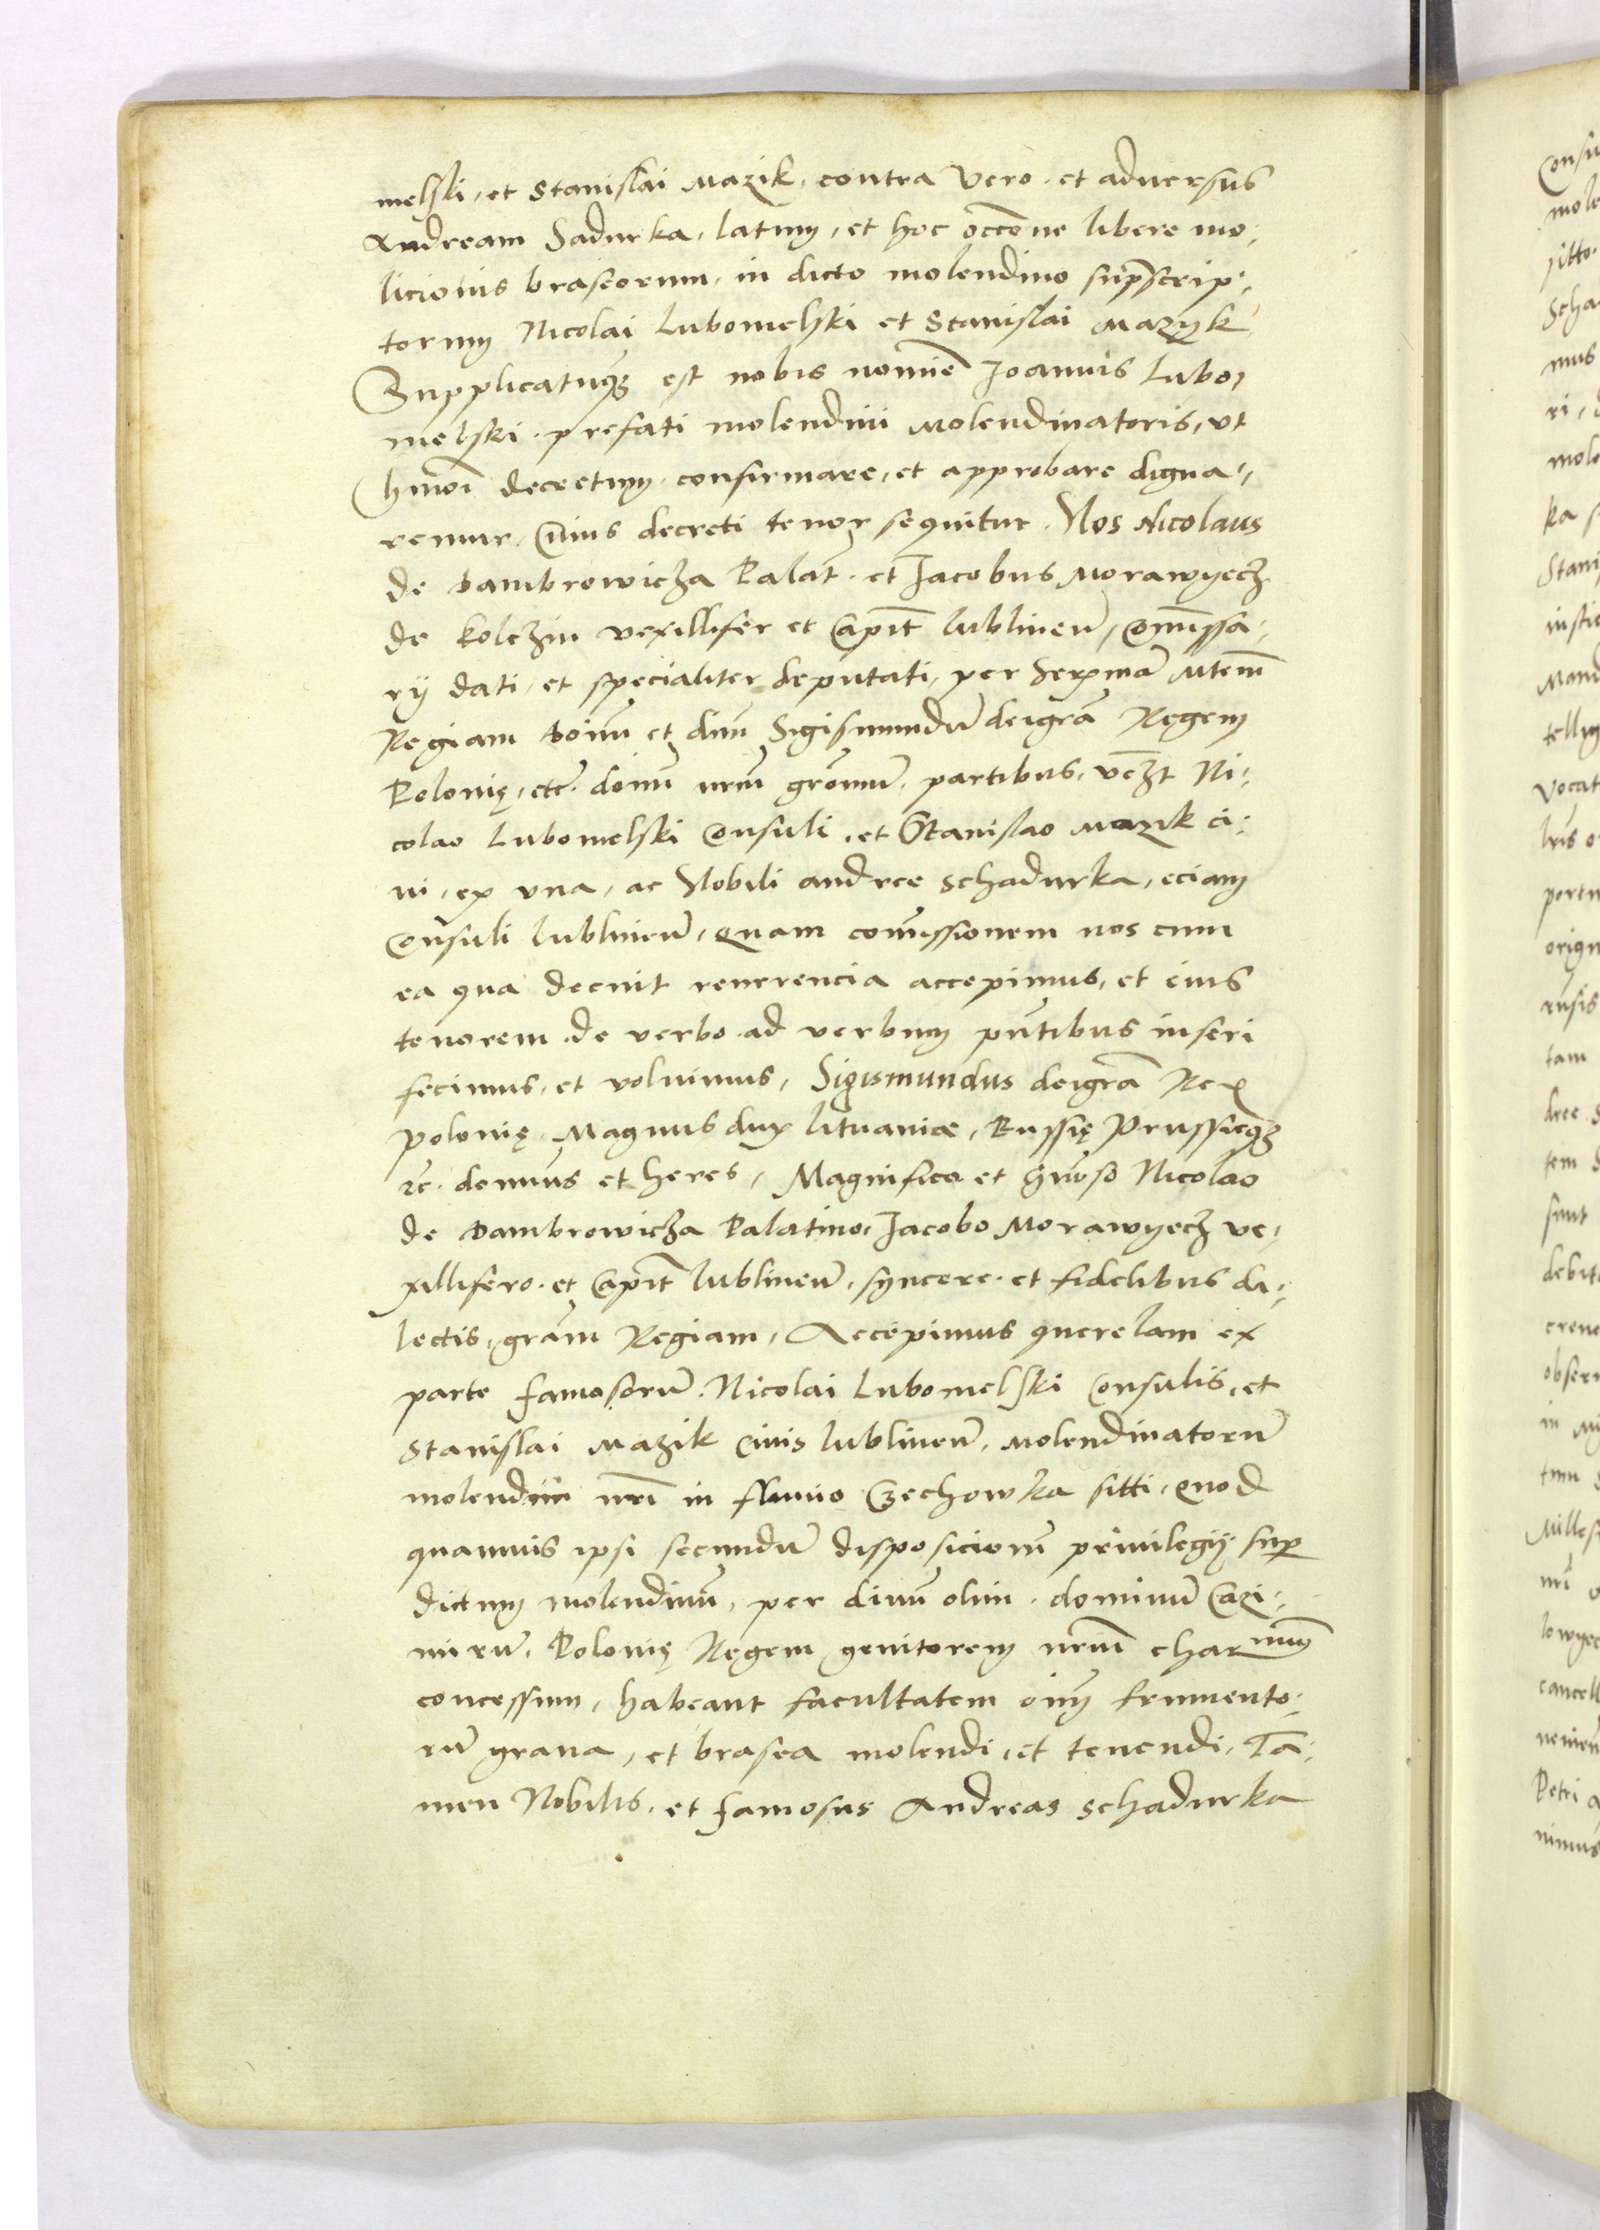 melski, et Stanislai Mazik, contra vero et aduersus
Andream Sadurka, latum, et hoc occõne libere mo:
licionis braseorum, in dicto molendino suprascrip:
torum Nicolai Lubomelski et Stanislai Mazyk
Supplicatumqʒ est nobis nomine Ioannis Lubo,
melski prefati molendini Molendinatoris, vt
hmõi decretum confirmare, et approbare digna:,
remur, Cuius decreti tenor sequitur. Nos Nicolaus
de Dambrowicza Palat̃. et Iacobus Morawyecʒ
de kolczin vexillifer et Capit̃ lublineñ, Com̃issa:
rij dati, et specialiter deputati, per Serẽmã Mtem̃
Regiam Doim̃ et dñm Sigismundũ deigrã Regem
Polonię, etc̃. doim̃ nrm̃ grõsum̃, partibus, vcʒt Ni:
colao Lubomelski Consuli, et Stanislao Mazik ci:
ui, ex vna, ac Nobili andree Schadurka, eciam
Consuli lublineñ, Quam com̃issionem nos cum
ea qua decuit reuerencia accepimus, et eius
tenorem de verbo ad verbum pñtibus inseri
fecimus, et voluimus, Sigismundus deigrã Rex
Polonię, Magnus dux lituaniæ, Russię Prussięqʒ
etc̃. domiñs et heres, Magnifico et Gñoso Nicolao
de Dambrowicza Palatino, Iacobo Morawyecʒ ve:
xillifero et Capit̃ lublineñ, syncere et fidelibus di:
lectis, grãm Regiam, Accepimus querelam ex
parte famosorũ Nicolai Lubomelski Consulis, et
Stanislai Mazik Ciuis lublineñ, Molendinatorũ
molendini nri̇̃ in fluuio Czechowka sitti, Quod
quamuis ipsi secundũ disposicionẽ priuilegij super
dictum molendinũ, per diuũ olim dominũ Cazi:
mirũ, Polonię Regem genitorem nrm̃ char̃mum
concessum, habeant facultatem oim̃ frumento:
rũ grana, et brasea molendi, et tenendi, Ta:
men Nobilis, et famosus Andreas Schadurka